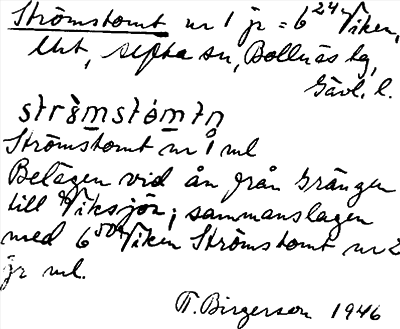 Strömstomt nr 1 jr = 6 24 Viken,
Utt, Alfta sn, Bollnäs tg,
Gävl. l.
strö̀mstòmtn
Strömstomt nr 1 ml
Belägen vid ån från Grängen
till Viksjön; sammanslagen
med 6 50 Viken Strömstomt nr 2
jr ml.
T. Birgerson 1946